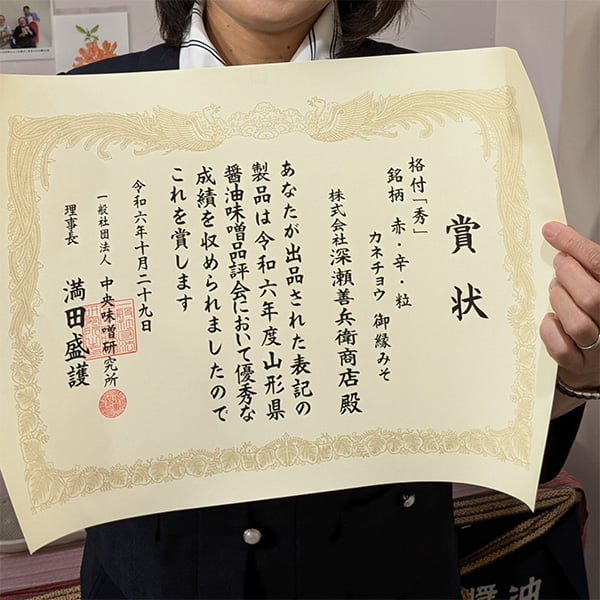 賞状
格付「秀」
銘柄 赤・辛・粒
カネチョウ 御縁みそ
株式会社深瀬善兵衛商店殿
あなたが出品された表記の
製品は令和六年度山形県
醤油味噌品評会において優秀な
成績を収められましたので
これを賞します
令和六年十月二十九日
一般社団法人 中央味噌研究所
理事長 満田盛護
醤油